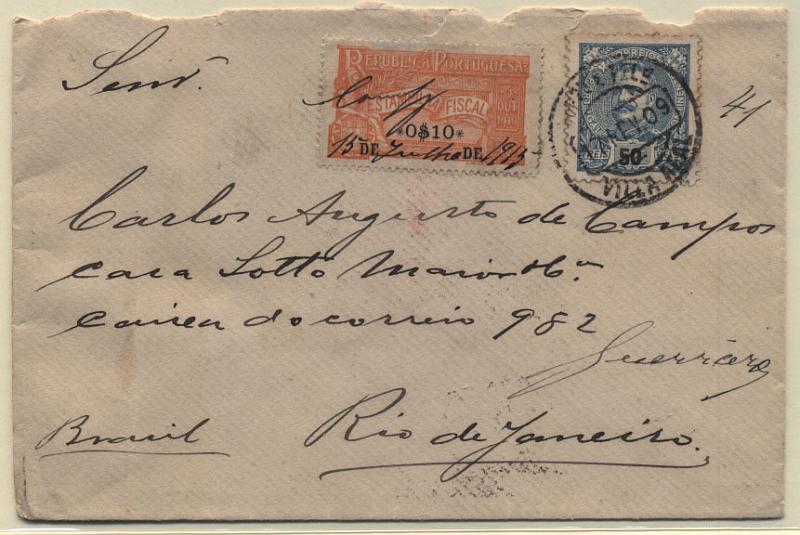 Senr.
REPUBLICA PORTUGUESA
ESTAMPILHA FISCAL
5 OUT 1910
*0$10*
15 DE Julho DE 1915
CORREIOS
50
41
Carlos Augusto de Campos
casa Sotto Maior & Cia
caixa do correio 982
Guerreiro
Brasil
Rio de Janeiro.